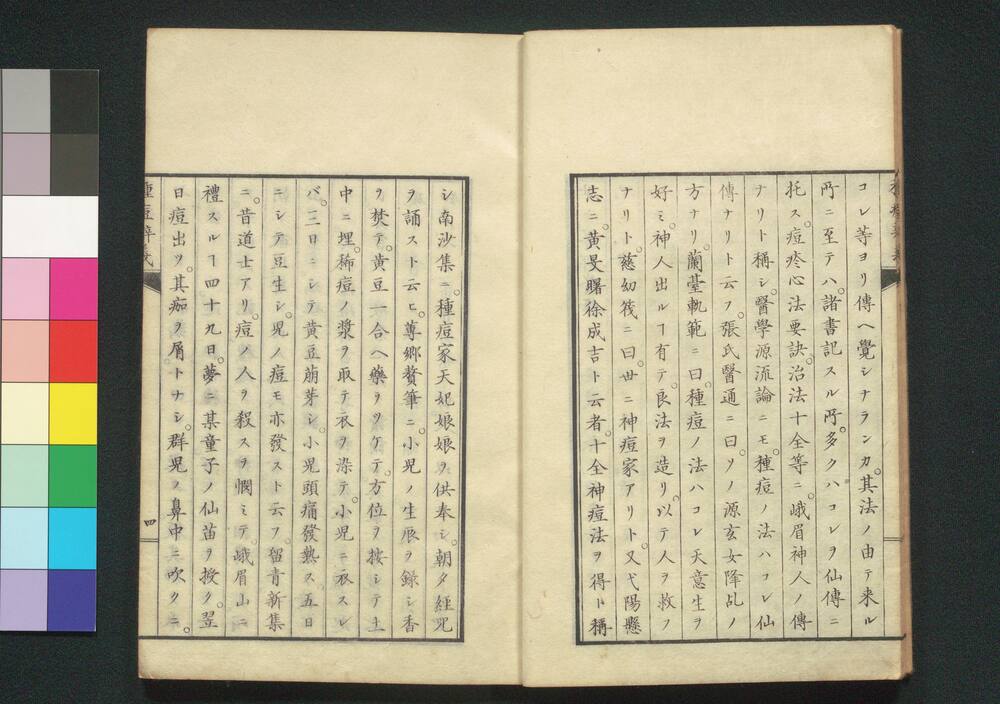 コレ等ヨリ傳ヘ覺シナランカ。其法ノ由テ来ル
所ニ至テハ。諸書記スル所多クハコレヲ仙傳ニ
托ス。痘疹心法要訣。治法十全等ニ。峨眉神人ノ傳
ナリト稱シ。醫學源流論ニモ。種痘ノ法ハコレ仙
傳ナリト云フ。張氏醫通ニ曰。ソノ源玄女降乩ノ
方ナリ。蘭臺軌範ニ曰。種痘ノ法ハコレ天意生ヲ
好ミ。神人出ルヿ有テ。良法ヲ造リ。以テ人ヲ救フ
ナリト。慈幼筏ニ曰。世ニ神痘家アリト。又弋陽縣
志ニ。黄旻曙徐成吉ト云者。十全神痘法ヲ得ト稱
シ南沙集ニ。種痘家天妃娘娘ヲ供奉シ。朝夕經咒
ヲ誦スト云ヒ。蓴鄉贅筆ニ。小児ノ生辰ヲ録シ香
ヲ焚テ。黄豆一合ヘ藥ヲツケテ。方位ヲ按シテ土
中ニ埋。稀痘ノ漿ヲ取テ衣ヲ染テ。小児ニ衣スレ
バ。三日ニシテ黄豆萠芽シ。小児頭痛發熱ス五日
ニシテ豆生シ。児ノ痘モ亦發スト云フ。留青新集
ニ。昔道士アリ。痘ノ人ヲ殺スヲ憫ミテ。峨眉山ニ
禮スルヿ四十九日。夢ニ某童子ノ仙苗ヲ授ク。翌
日痘出ヅ。其痂ヲ屑トナシ。群児ノ鼻中ニ吹クニ。
四